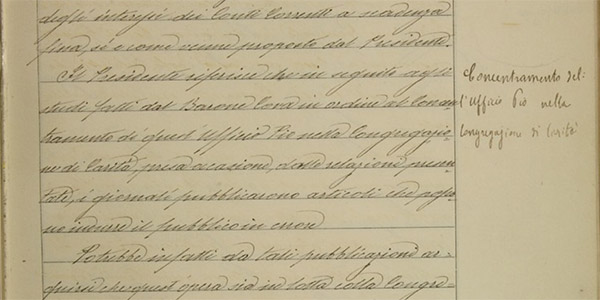 degli interessi dei Conti Correnti a scadenza
fissa, sì e come venne proposto dal Presidente.
Il Presidente riferisce che in seguito agli
studi fatti dal Barone Cova in ordine al Concen
tramento di quest'Ufficio Pio nella Congregazio-
ne di Carità, presa occasione, dalle relazioni presen
tate, i giornali pubblicarono articoli che posso
no indurre il pubblico in errore
Potrebbe infatti da tali pubblicazioni ar-
guirsi che quest'opera sia in lotta colla Congre-
Concentramento del-
l'Ufficio Pio nella
Congregazione di Carità